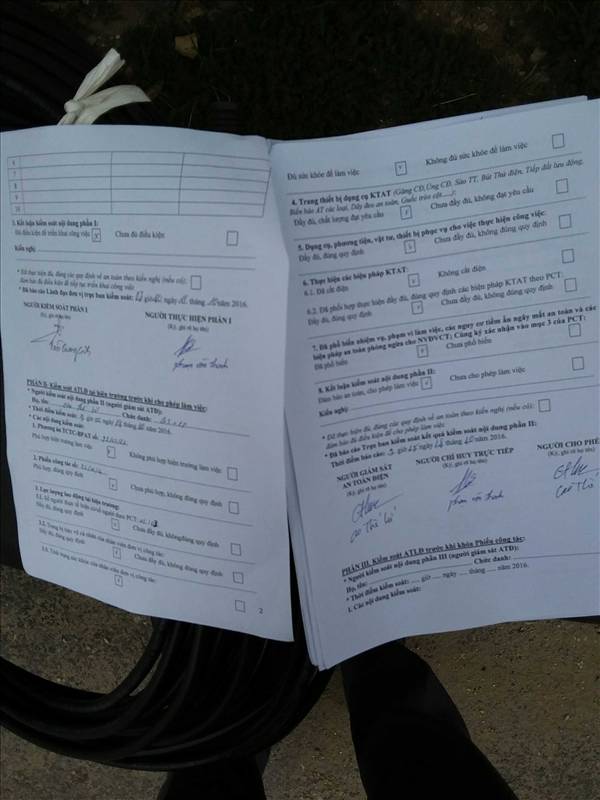 6
7
8
9
10
3. Kết luận kiểm soát nội dung phần I:
Đủ điều kiện để triển khai công việc x Chưa đủ điều kiện
Kiến nghị
* Đã thực hiện đủ, đúng các quy định về an toàn theo kiến nghị (nếu có):
đảm bảo đủ điều kiện để tiếp tục triển khai công việc
* Đã báo cáo Lãnh đạo đơn vị trực ban kiểm soát: giờ ngày tháng năm 2016.
NGƯỜI KIỂM SOÁT PHẦN I
(Ký, ghi rõ họ tên)
NGƯỜI THỰC HIỆN PHẦN I
(Ký, ghi rõ họ tên)
phạm văn thành
PHẦN II. Kiểm soát ATLĐ tại hiện trường trước khi cho phép làm việc:
* Người kiểm soát nội dung phần II (người giám sát ATĐ):
Họ, tên: Chức danh:
* Thời điểm kiểm soát: giờ ngày tháng năm 2016.
* Các nội dung kiểm soát:
1. Phương án TCTC-BPAT số:
Phù hợp hiện trường làm việc Không phù hợp hiện trường làm việc:
2. Phiếu công tác số:
Phù hợp, đúng quy định Chưa phù hợp, không đúng quy định
3. Lực lượng lao động tại hiện trường:
Đầy đủ, đúng quy định Chưa đầy đủ, không đúng quy định
3.2. Trang bị bảo vệ cá nhân của nhân viên đơn vị công tác:
Đầy đủ, đúng quy định Chưa đầy đủ, không đúng quy định
3.3. Tình trạng sức khỏe của nhân viên đơn vị công tác:
2
Đủ sức khỏe để làm việc Không đủ sức khỏe để làm việc
4. Trang thiết bị dụng cụ KTAT (Găng CĐ, Ủng CĐ, Sào TT, Bút Thử điện, Tiếp đất lưu động,
Biển báo AT các loại, Dây đeo an toàn, Guốc trèo cột....):
Đầy đủ, chất lượng đạt yêu cầu Chưa đầy đủ, không đạt yêu cầu
5. Dụng cụ, phương tiện, vật tư, thiết bị phục vụ cho việc thực hiện công việc:
Đầy đủ, đúng quy định Chưa đầy đủ, không đúng quy định
6. Thực hiện các biện pháp KTAT:
6.1. Đã cắt điện Không cắt điện
6.2. Đã phối hợp thực hiện đầy đủ, đúng quy định các biện pháp KTAT theo PCT:
Đầy đủ, đúng quy định Chưa đầy đủ, không đúng quy định
7. Đã phổ biến nhiệm vụ, phạm vi làm việc, các nguy cơ tiềm ẩn gây mất an toàn và các
biện pháp an toàn phòng ngừa cho NVĐVCT; Cùng ký xác nhận vào mục 3 của PCT:
Đã phổ biến Chưa phổ biến
8. Kết luận kiểm soát nội dung phần II:
Đảm bảo an toàn, cho phép làm việc Chưa cho phép làm việc
Kiến nghị:
* Đã thực hiện đủ, đúng các quy định về an toàn theo kiến nghị (nếu có):
đảm bảo đủ điều kiện để cho phép làm việc
* Đã báo cáo Trực ban kiểm soát kết quả kiểm soát nội dung phần II:
Thời điểm báo cáo: giờ ngày tháng 10 năm 2016.
NGƯỜI GIÁM SÁT
AN TOÀN ĐIỆN
(Ký, ghi rõ họ tên)
NGƯỜI CHỈ HUY TRỰC TIẾP
(Ký, ghi rõ họ tên)
phạm văn thành
NGƯỜI CHO PHÉ
(Ký, ghi rõ họ tên)
PHẦN III. Kiểm soát ATLĐ trước khi khóa Phiếu công tác:
* Người kiểm soát nội dung phần III (người giám sát ATĐ):
Họ, tên: Chức danh:
* Thời điểm kiểm soát: .... giờ .... ngày .... tháng .... năm 2016.
1. Các nội dung kiểm soát: